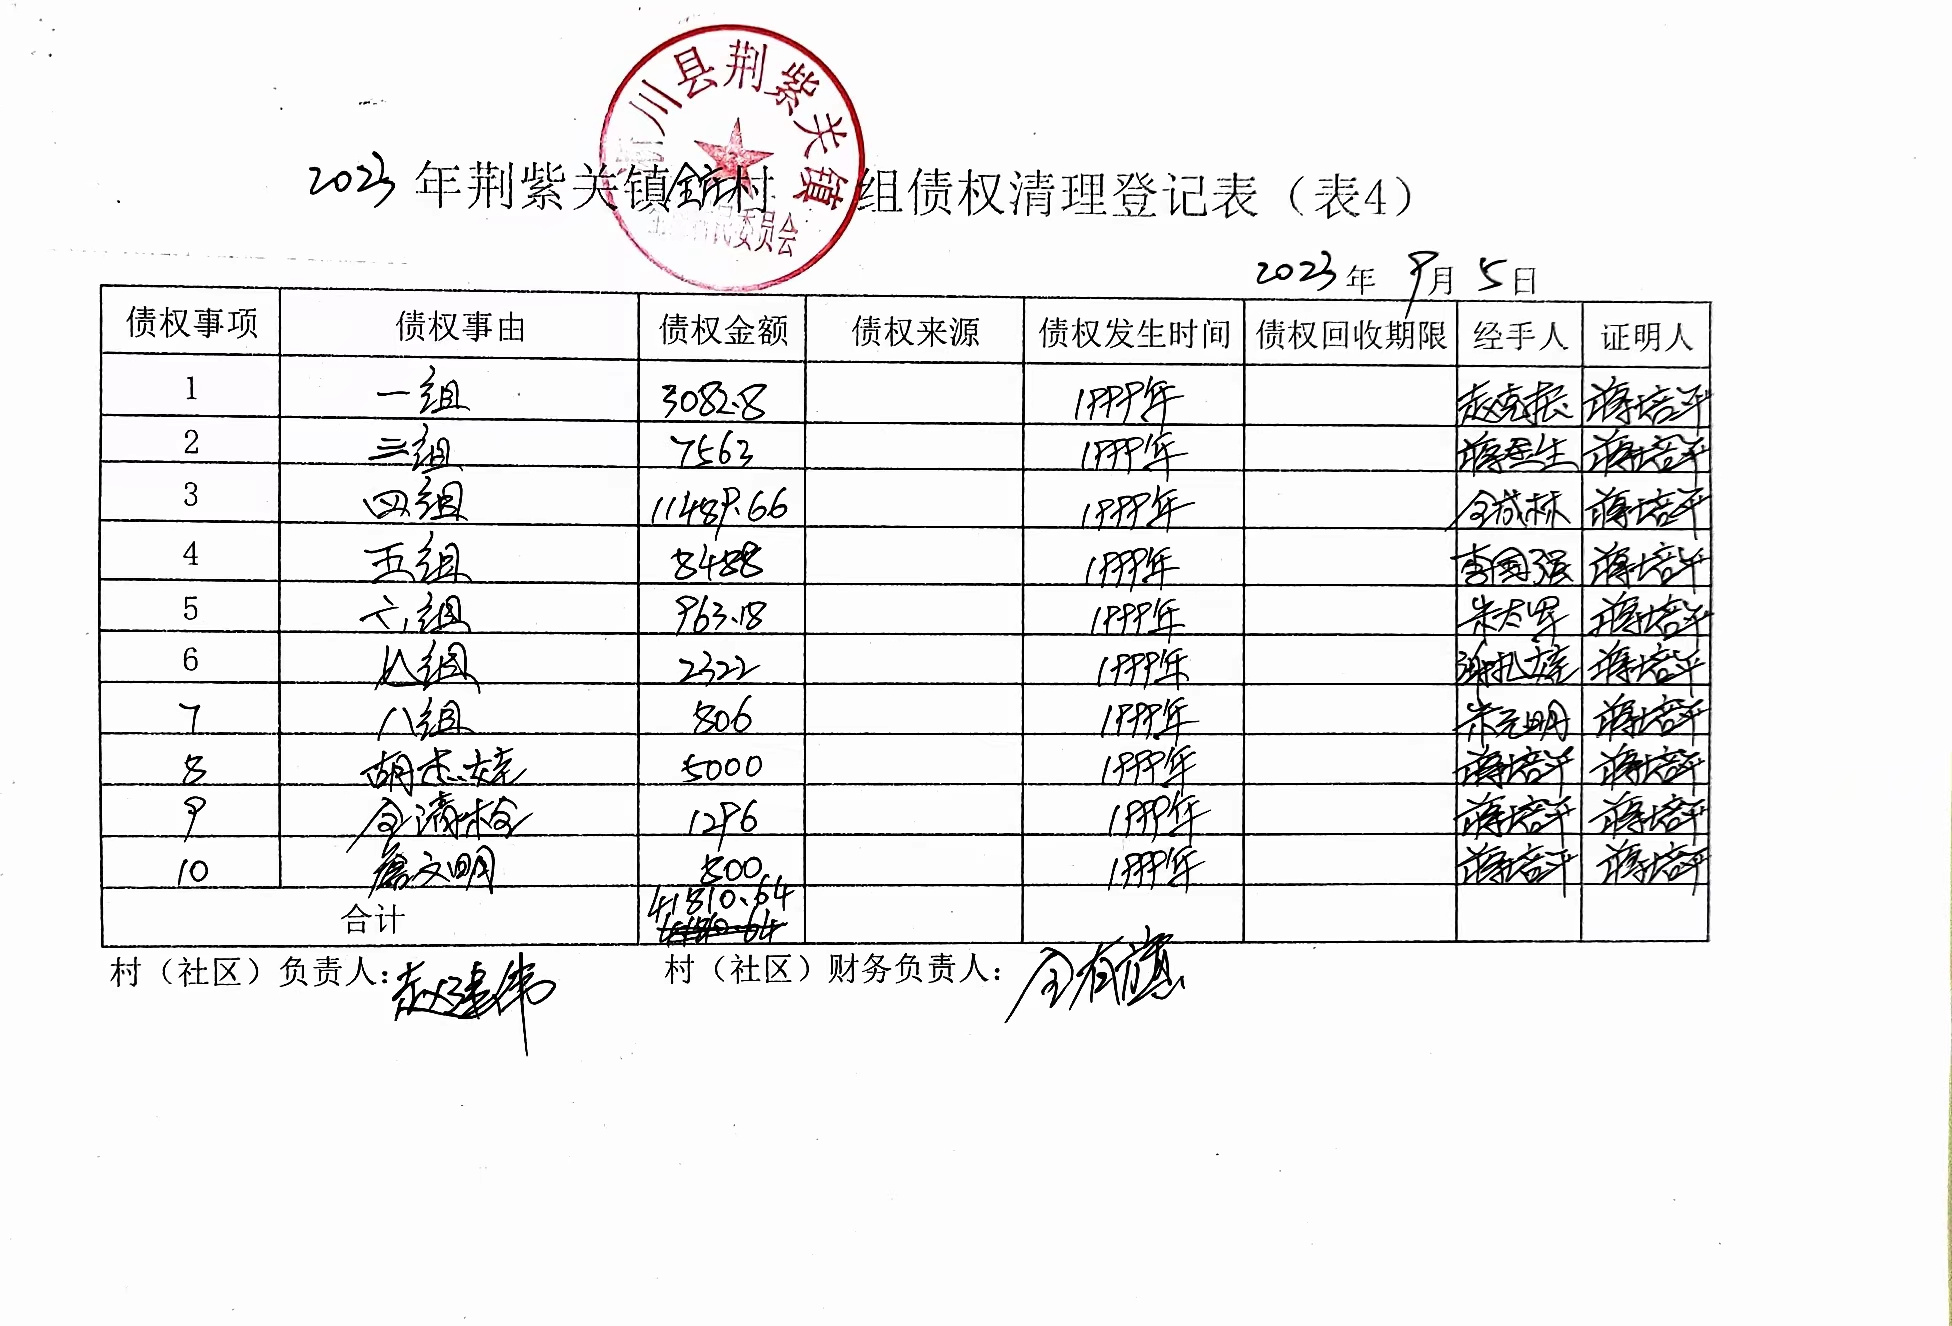 淅川县荆紫关镇
2023年荆紫关镇全庄村 组债权清理登记表（表4）
村民委员会
2023年 9月 5日
债权事项 债权事由 债权金额 债权来源 债权发生时间 债权回收期限 经手人 证明人
1 一组 3082.8 1999年 赵克振 蒋培平
2 三组 7563 1999年 生 蒋培平
3 四组 11489.66 1999年 全成林 蒋培平
4 五组 8488 1999年 李国强 蒋培平
5 六组 963.18 1999年 朱太军 蒋培平
6 组 2322 1999年 蒋培平
7 八组 806 1999年 朱元明 蒋培平
8 胡杰娃 5000 1999年 蒋培平 蒋培平
9 全清栓 1296 1999年 蒋培平 蒋培平
10 文明 800 1999年 蒋培平 蒋培平
合计 41810.64
村（社区）负责人：赵建伟 村（社区）财务负责人：全有